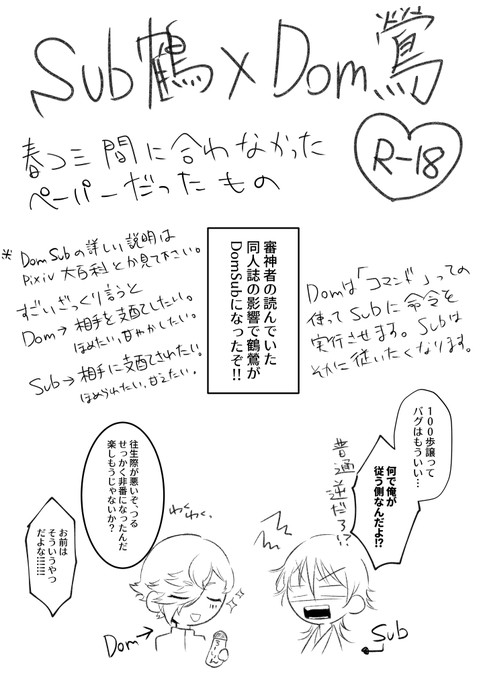 Sub鶴×Dom鶯
春コミ間に合わなかった
ペーパーだったもの
R-18
※DomSubの詳しい説明は
Pixiv大百科とか見て下さい。
すごいざっくり言うと
Dom→相手を支配したい。
ほめたい,甘やかしたい。
Sub→相手に支配されたい。
ほめられたい,甘えたい。
審神者の読んでいた
同人誌の影響で鶴鶯が
DomSubになったぞ!!
Domは「コマンド」っての
使ってSubに命令を
実行させます。Subは
それに従いたくなります。
100歩譲って
バグはもういい…
何で俺が
従う側なんだよ!?
普通逆だろ!?
往生際が悪いぞ、つる
せっかく非番になったんだ
楽しもうじゃないか?
わくわく。
お前は
そういうやつ
だよな!!!!!!
Dom→
Sub